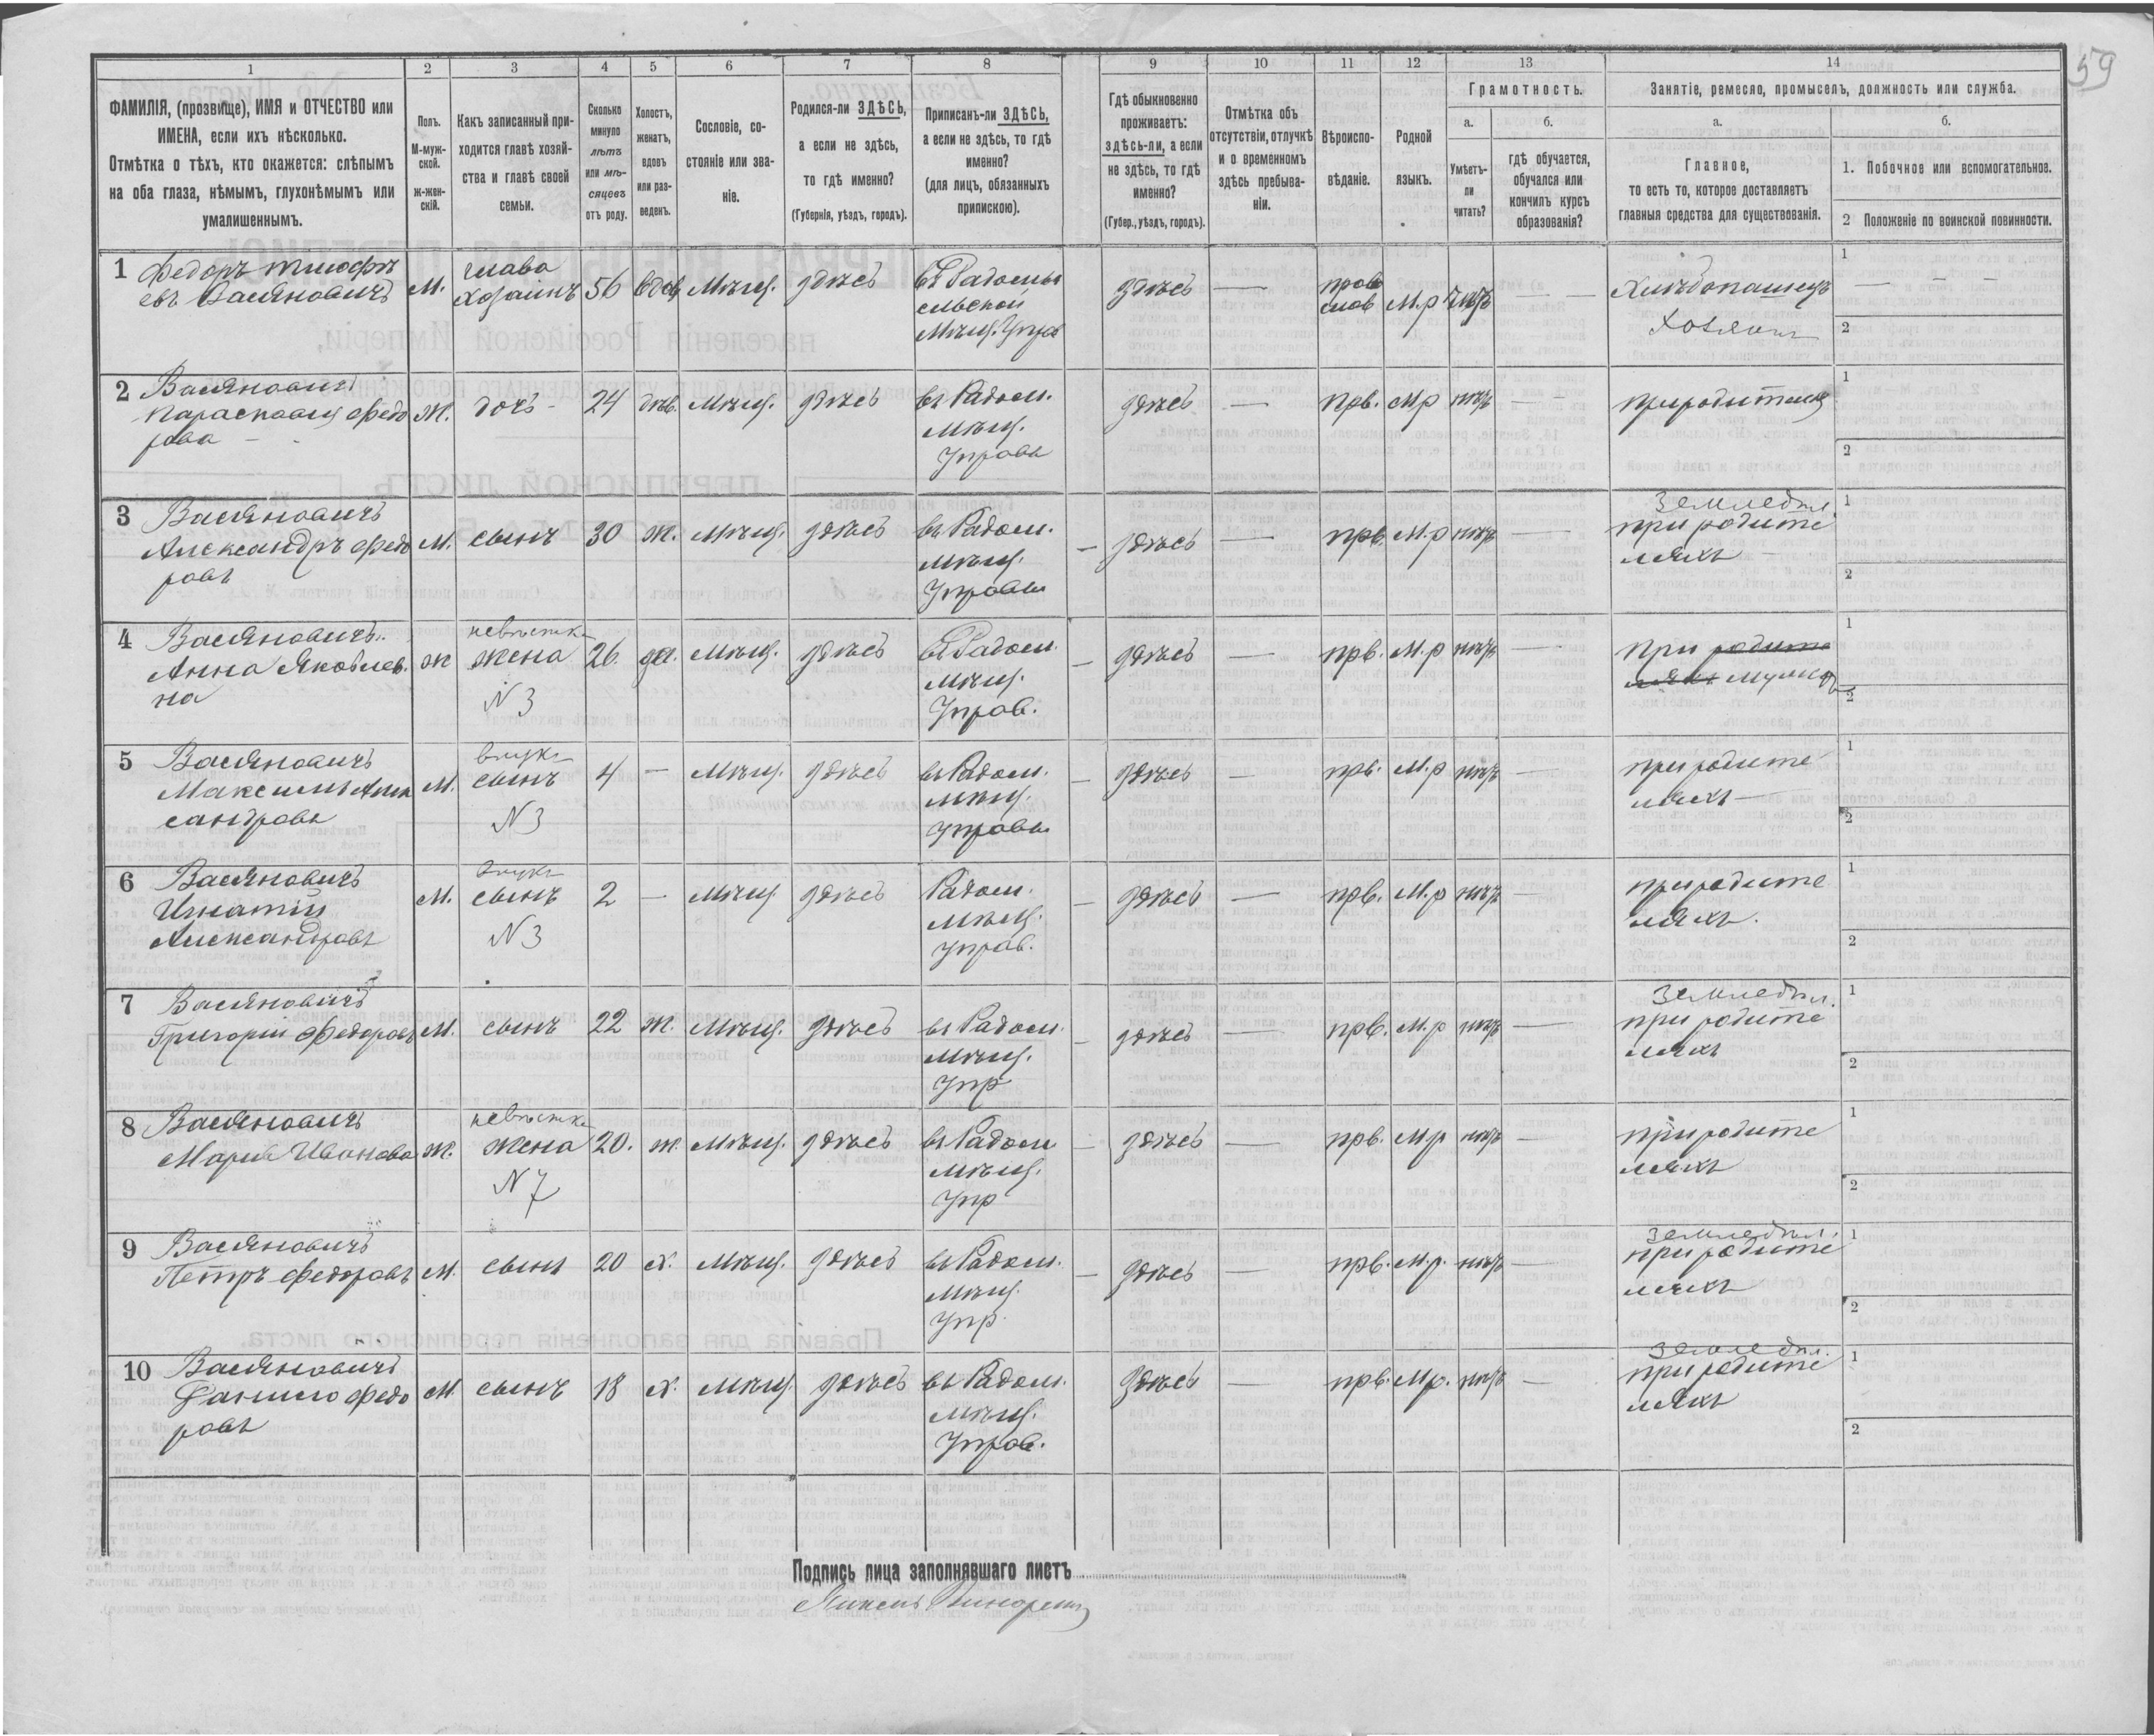 59
1 2 3 4 5 6 7 8 9 10 11 12 13 14
ФАМИЛІЯ, (прозвище), ИМЯ и ОТЧЕСТВО или
ИМЕНА, если ихъ нѣсколько.
Отмѣтка о тѣхъ, кто окажется: слѣпымъ
на оба глаза, нѣмымъ, глухонѣмымъ или
умалишеннымъ.
Полъ.
М-муж-
ской.
ж-жен-
скій.
Какъ записанный при-
ходится главѣ хозяй-
ства и главѣ своей
семьи.
Сколько
минуло
лѣтъ
или мѣ-
сяцевъ
отъ роду.
Холостъ,
женатъ,
вдовъ
или раз-
веденъ.
Сословіе, со-
стояніе или зва-
ніе.
Родился-ли ЗДѢСЬ,
а если не здѣсь,
то гдѣ именно?
(Губернія, уѣздъ, городъ).
Приписанъ-ли ЗДѢСЬ,
а если не здѣсь, то гдѣ
именно?
(для лицъ, обязанныхъ
припискою).
Гдѣ обыкновенно
проживаетъ:
здѣсь-ли, а если
не здѣсь, то гдѣ
именно?
(Губер., уѣздъ, городъ).
Отмѣтка объ
отсутствіи, отлучкѣ
и о временномъ
здѣсь пребыва-
ніи.
Вѣроиспо-
вѣданіе.
Родной
языкъ.
Грамотность.
а.
Умѣетъ-
ли
читать?
б.
гдѣ обучается,
обучался или
кончилъ курсъ
образованія?
Занятіе, ремесло, промыселъ, должность или служба.
а.
Главное,
то есть то, которое доставляетъ
главныя средства для существованія.
б.
1. Побочное или вспомогательное.
2 Положеніе по воинской повинности.
1 Федоръ Тимофѣ
евъ Васяновичъ
М.
глава
хозяинъ
56 вдов Мѣщ. здѣсь
въ Радомы
сльской
Мѣщ. Управ
здѣсь —
право
слав
М.р читъ — —
Хлѣбопашецъ
Хозяин
1 — — —
2
2 Васяновичъ
Параскавия Федо
рова —
Ж. дочь - 24 дѣв. Мѣщ. здѣсь
въ Радом.
Мѣщ.
Управы
здѣсь — прв. Мр нѣтъ — —
1
2
3 Васяновичъ
Александръ Федо
ровъ
М. сынъ 30 Ж. Мѣщ. здѣсь
въ Радом.
Мѣщ.
Управы
— здѣсь — прв. М.р нѣтъ —
Земледѣл.
при родите
ляхъ —
1
2
4 Васяновичъ
Анна Яковлев.
на
Ж
невѣстка
жена
N 3
26. Мѣщ. здѣсь
въ Радом.
Мѣщ.
Управ.
— здѣсь — прв. М.р нѣтъ —
При родите
ляхъ мужѣ
1
2
5 Васяновичъ
Максимъ Алек
сандровъ
М.
внукъ
сынъ
N 3
4 — Мѣщ. здѣсь
въ Радом.
Мѣщ.
Управы
— здѣсь — прв. М.р нѣтъ —
при родите
ляхъ —
1
2
6 Васяновичъ
Игнатій
Александровъ
М.
внукъ
сынъ
N 3
2 — Мѣщ здѣсь
Радом.
Мѣщ.
Управ.
— здѣсь — прв. М.р нѣтъ —
при родите
ляхъ.
1
2
7 Васяновичъ
Григорій Федоровъ
М. сынъ 22 Ж. Мѣщ. здѣсь
въ Радом.
Мѣщ.
Упр
— здѣсь — прв. М.р нѣтъ —
Земледѣл.
при родите
ляхъ
1
2
8 Васяновичъ
Марія Иванова
Ж.
невѣстка
жена
N 7
20. Ж. Мѣщ. здѣсь
въ Радом
Мѣщ.
Упр
— здѣсь — прв. М.р нѣтъ —
при родите
ляхъ
1
2
9 Васяновичъ
Петръ Федоровъ
М. сынъ 20 Х. Мѣщ. здѣсь
въ Радом.
Мѣщ.
Упр.
— здѣсь — прв. М.р. нѣтъ —
Земледѣл.
при родите
ляхъ
1
2
10 Васяновичъ
Данило Федо
ровъ
М. сынъ 18 Х. Мѣщ. здѣсь
въ Радом.
Мѣщ.
Управ.
здѣсь — прв. М.р. нѣтъ —
Земледѣл.
при родите
ляхъ
1
2
Подпись лица заполнявшаго листъ